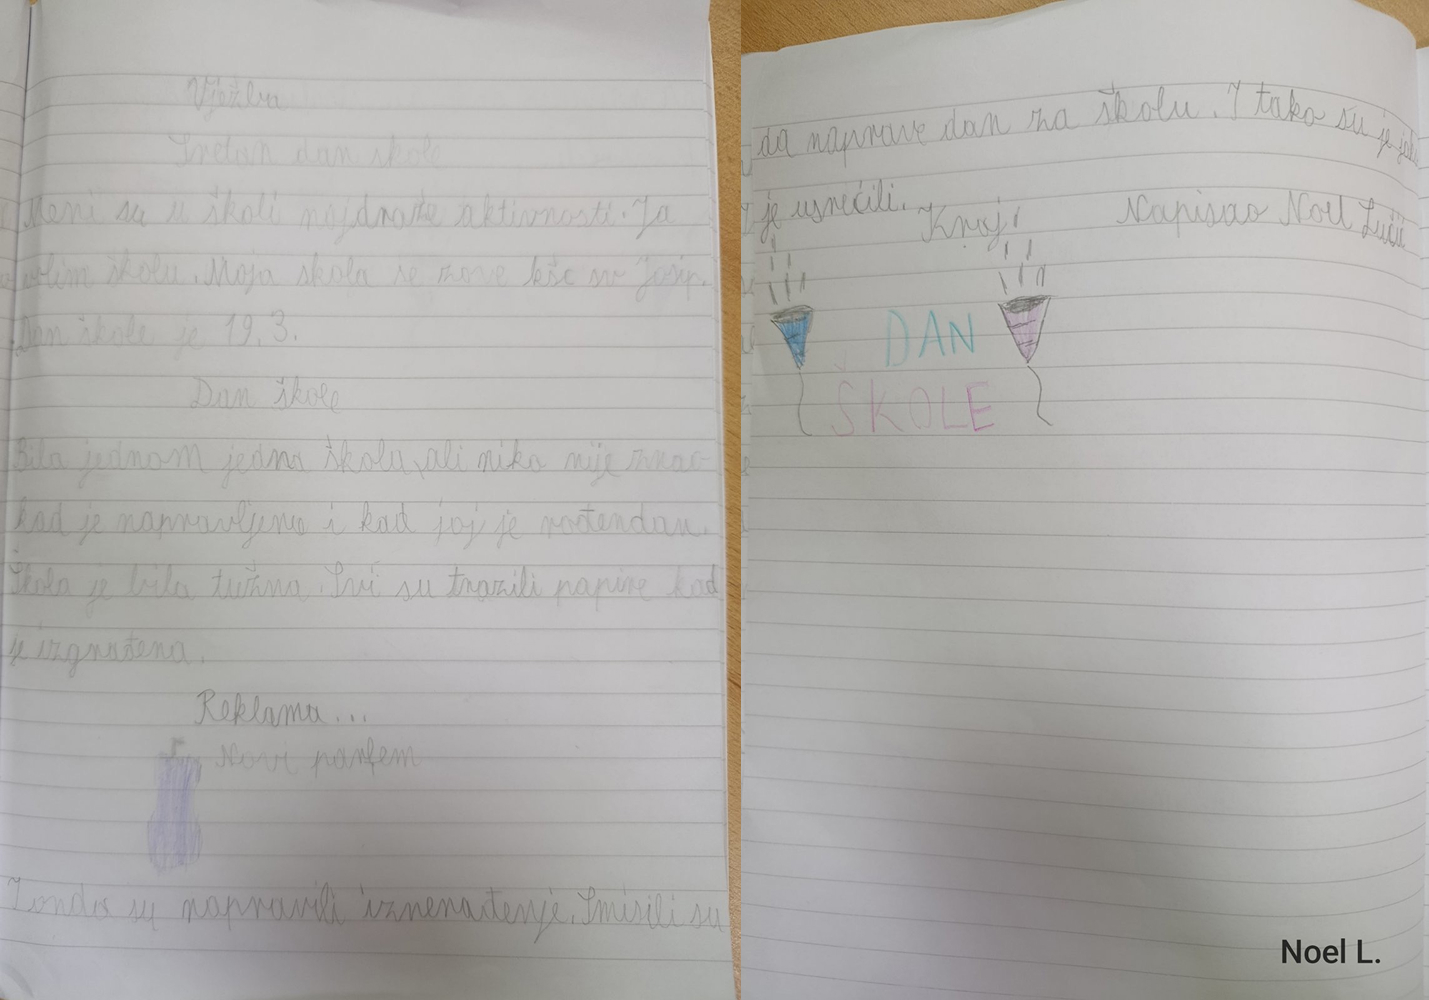 Vježba
Sretan dan škole
Meni su u školi najdraže aktivnosti. Ja
volim školu. Moja skola se zove kšc sv Josip.
Dan škole je 19.3.
Dan škole
Bila jednom jedna škola, ali niko nije znao
kad je napravljena i kad joj je rođendan.
Škola je bila tužna. Svi su trazili papire kad
je izgrađena.
Reklama...
Novi parfem
I onda su napravili iznenađenje. Smisili su
da naprave dan za školu. I tako su je jako
je usrećili.
Kraj!
Napisao Noel Lučić
DAN
ŠKOLE
Noel L.